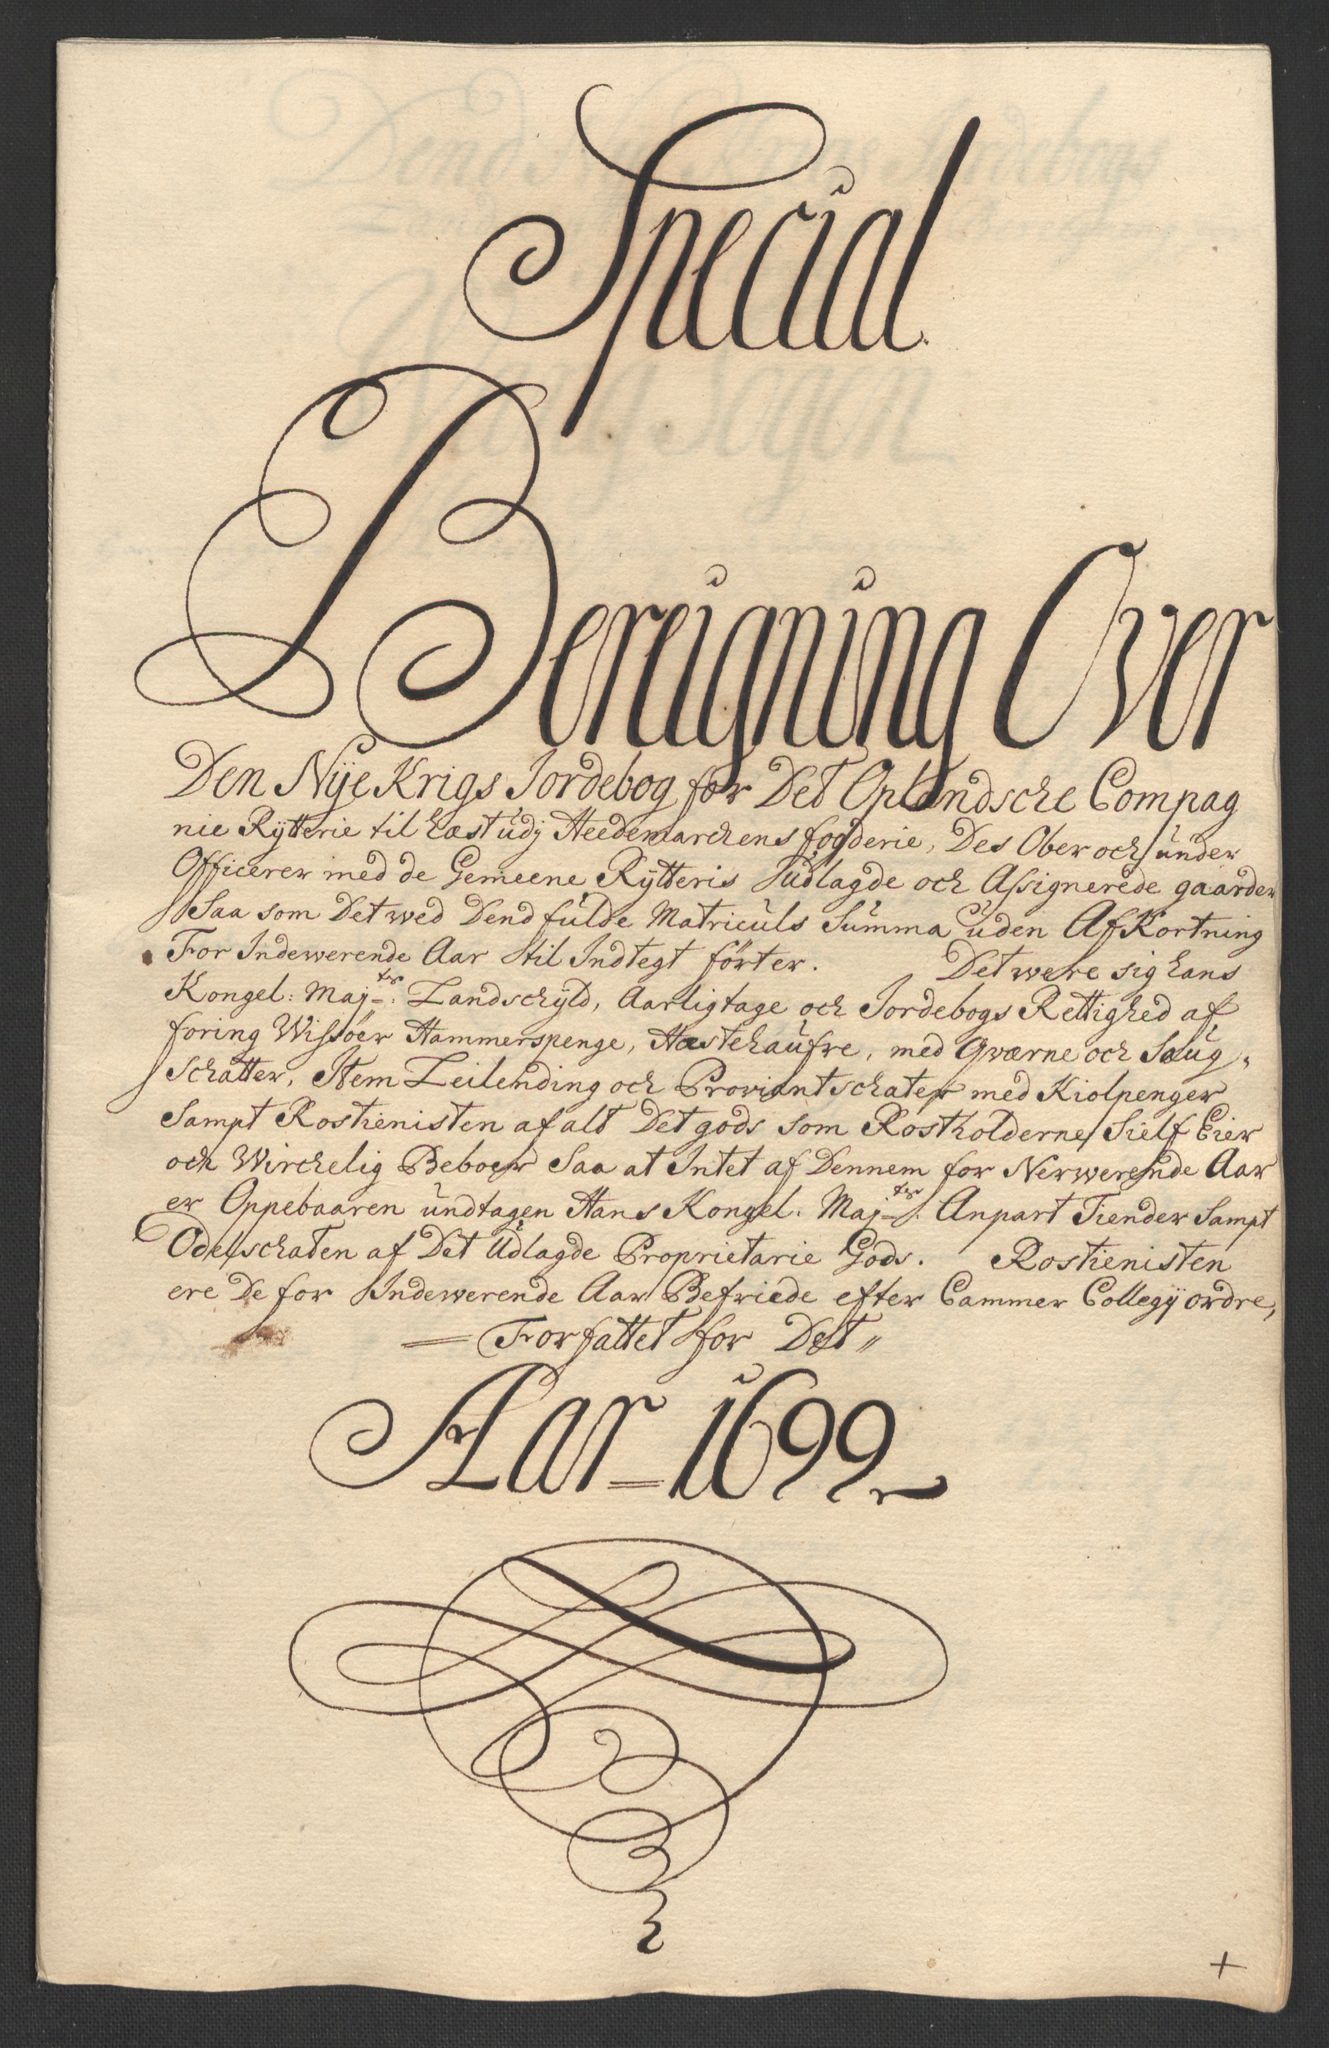 Special
Bereigning Over
Den Nÿe Krigs Jordebog for Det Oplandsche Compag
nie Rÿtterie til hæst udj Heedemarckens fogderie, Des Ober och under
Officerer med de Gemeene Rÿtteris Udlagde och Assignerede gaarder
Saa som Det wed Dend fulde Matriculs Summa uden AfKortning
For Indewerende Aar til Indtegt förter. Det were sig hans
Kongel: Maj:ts: Landschÿld, Aarligtage och Jordebogs Rettighed af
foring Wissöer Hammerspenge, Hæstehaufre, med Qværne och Saug-
Schatter, Item Leilending och Proviantschater med Kiolpenger
Sampt Rostienisten af alt Det gods som Rostholderne Sielf Eier
och Wirckelig Beboer Saa at Intet af Dennem for Nerwerende Aar
er Oppebaaren undtagen Hans Kongel: Maj:ts: Anpart Tiender Sampt
Odelschaten af Det Udlagde Proprietarie Gods. Rostienisten
ere De for Indewerende Aar Befriede efter Cammer Collegÿ ordre,
Forfattet for Det
Aar 1699